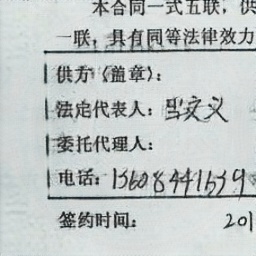 本合同一式五联，供
一联，具有同等法律效力
供方（盖章）：
法定代表人：
委托代理人：
电话：13608441539
签约时间： 201